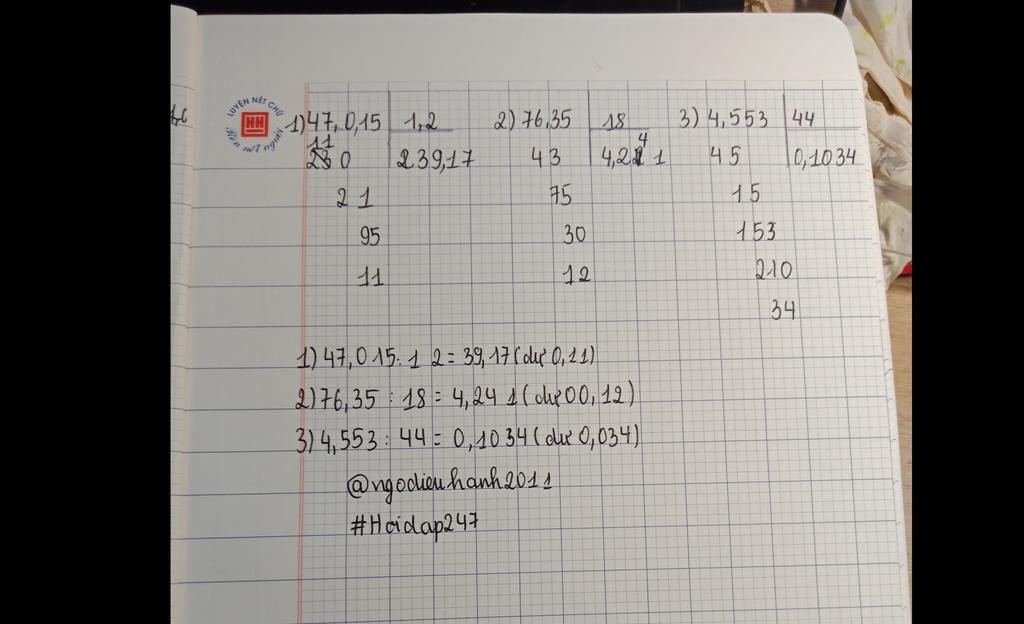 LUYỆN NẾT CHỮ
HH
Rèn nết người
1) 47,0,15 | 1,2 2) 76,35 | 18 3) 4,553 | 44
11
0 239,17 43 4,24 1 45 0,1034
21 75 15
95 30 153
11 12 210
34
1) 47,015: 1 2 = 39,17 (dư 0,11)
2) 76,35 : 18 = 4,24 1 (dư 00,12)
3) 4,553 : 44 = 0,1034 (dư 0,034)
@ngodieuhanh2011
#Hoidap247